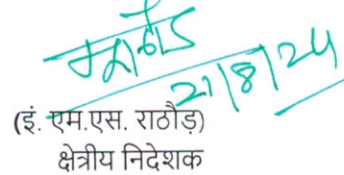 21/8/24
(इं. एम.एस. राठौड़)
क्षेत्रीय निदेशक